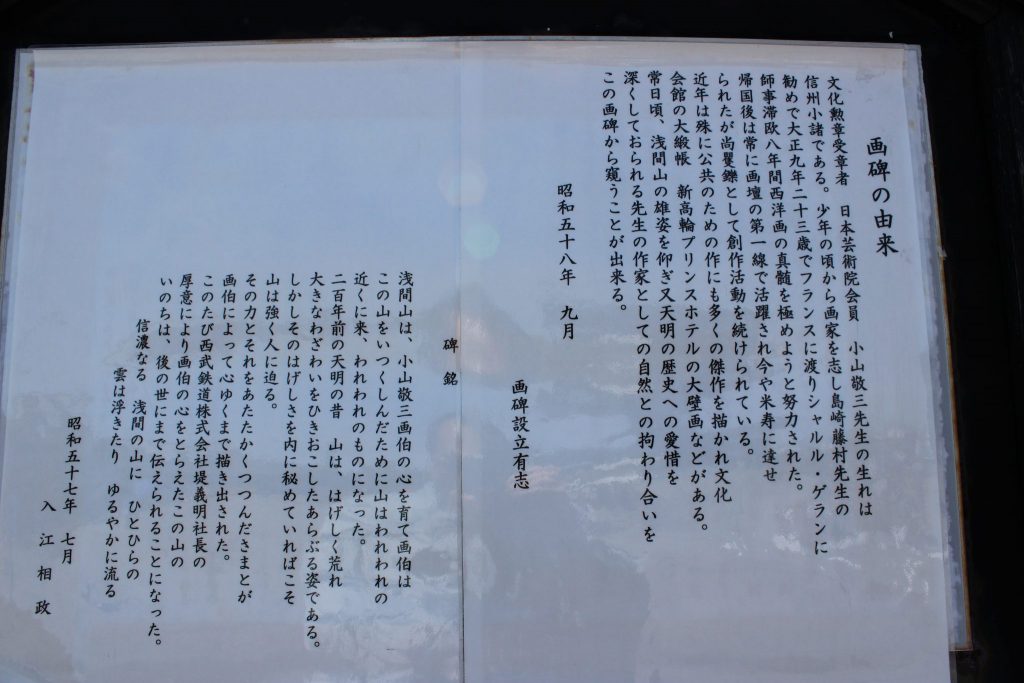 画碑の由来
文化勲章受章者　日本芸術院会員　小山敬三先生の生れは
信州小諸である。少年の頃から画家を志し島崎藤村先生の
勧めで大正九年二十三歳でフランスに渡りシャルル・ゲランに
師事滞欧八年間西洋画の真髄を極めようと努力された。
帰国後は常に画壇の第一線で活躍され今や米寿に達せ
られたが尚矍鑠として創作活動を続けられている。
近年は殊に公共のための作にも多くの傑作を描かれ文化
会館の大緞帳　新高輪プリンスホテルの大壁画などがある。
常日頃、浅間山の雄姿を仰ぎ又天明の歴史への愛惜を
深くしておられる先生の作家としての自然との拘わり合いを
この画碑から窺うことが出来る。
昭和五十八年　九月
画碑設立有志
碑銘
浅間山は、小山敬三画伯の心を育て画伯は
この山をいつくしんだために山はわれわれの
近くに来、われわれのものになった。
二百年前の天明の昔　山は、はげしく荒れ
大きなわざわいをひきおこしたあらぶる姿である。
しかしそのはげしさを内に秘めていればこそ
山は強く人に迫る。
その力とそれをあたたかくつつんださまとが
画伯によって心ゆくまで描き出された。
このたび西武鉄道株式会社堤義明社長の
厚意により画伯の心をとらえたこの山の
いのちは、後の世にまで伝えられることになった。
信濃なる　浅間の山に　ひとひらの
雲は浮きたり　ゆるやかに流る
昭和五十七年　七月
入江相政